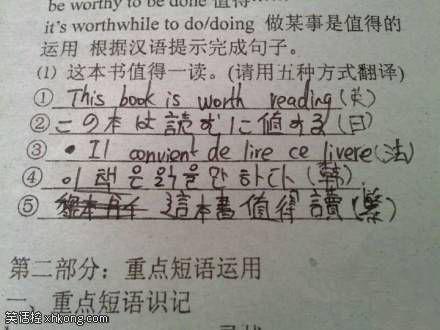 be worthy to be done 值得
it's worthwhile to do/doing 做某事是值得的
运用 根据汉语提示完成句子。
(1) 这本书值得一读。(请用五种方式翻译)
① This book is worth reading(英)
② この本は読むに値する(日)
③ • Il convient de lire ce livere(法)
④ 이 책은 읽을 만 하다(韩)
⑤ 這本書值得讀(繁)
第二部分：重点短语运用
一、重点短语识记
xhkong.com